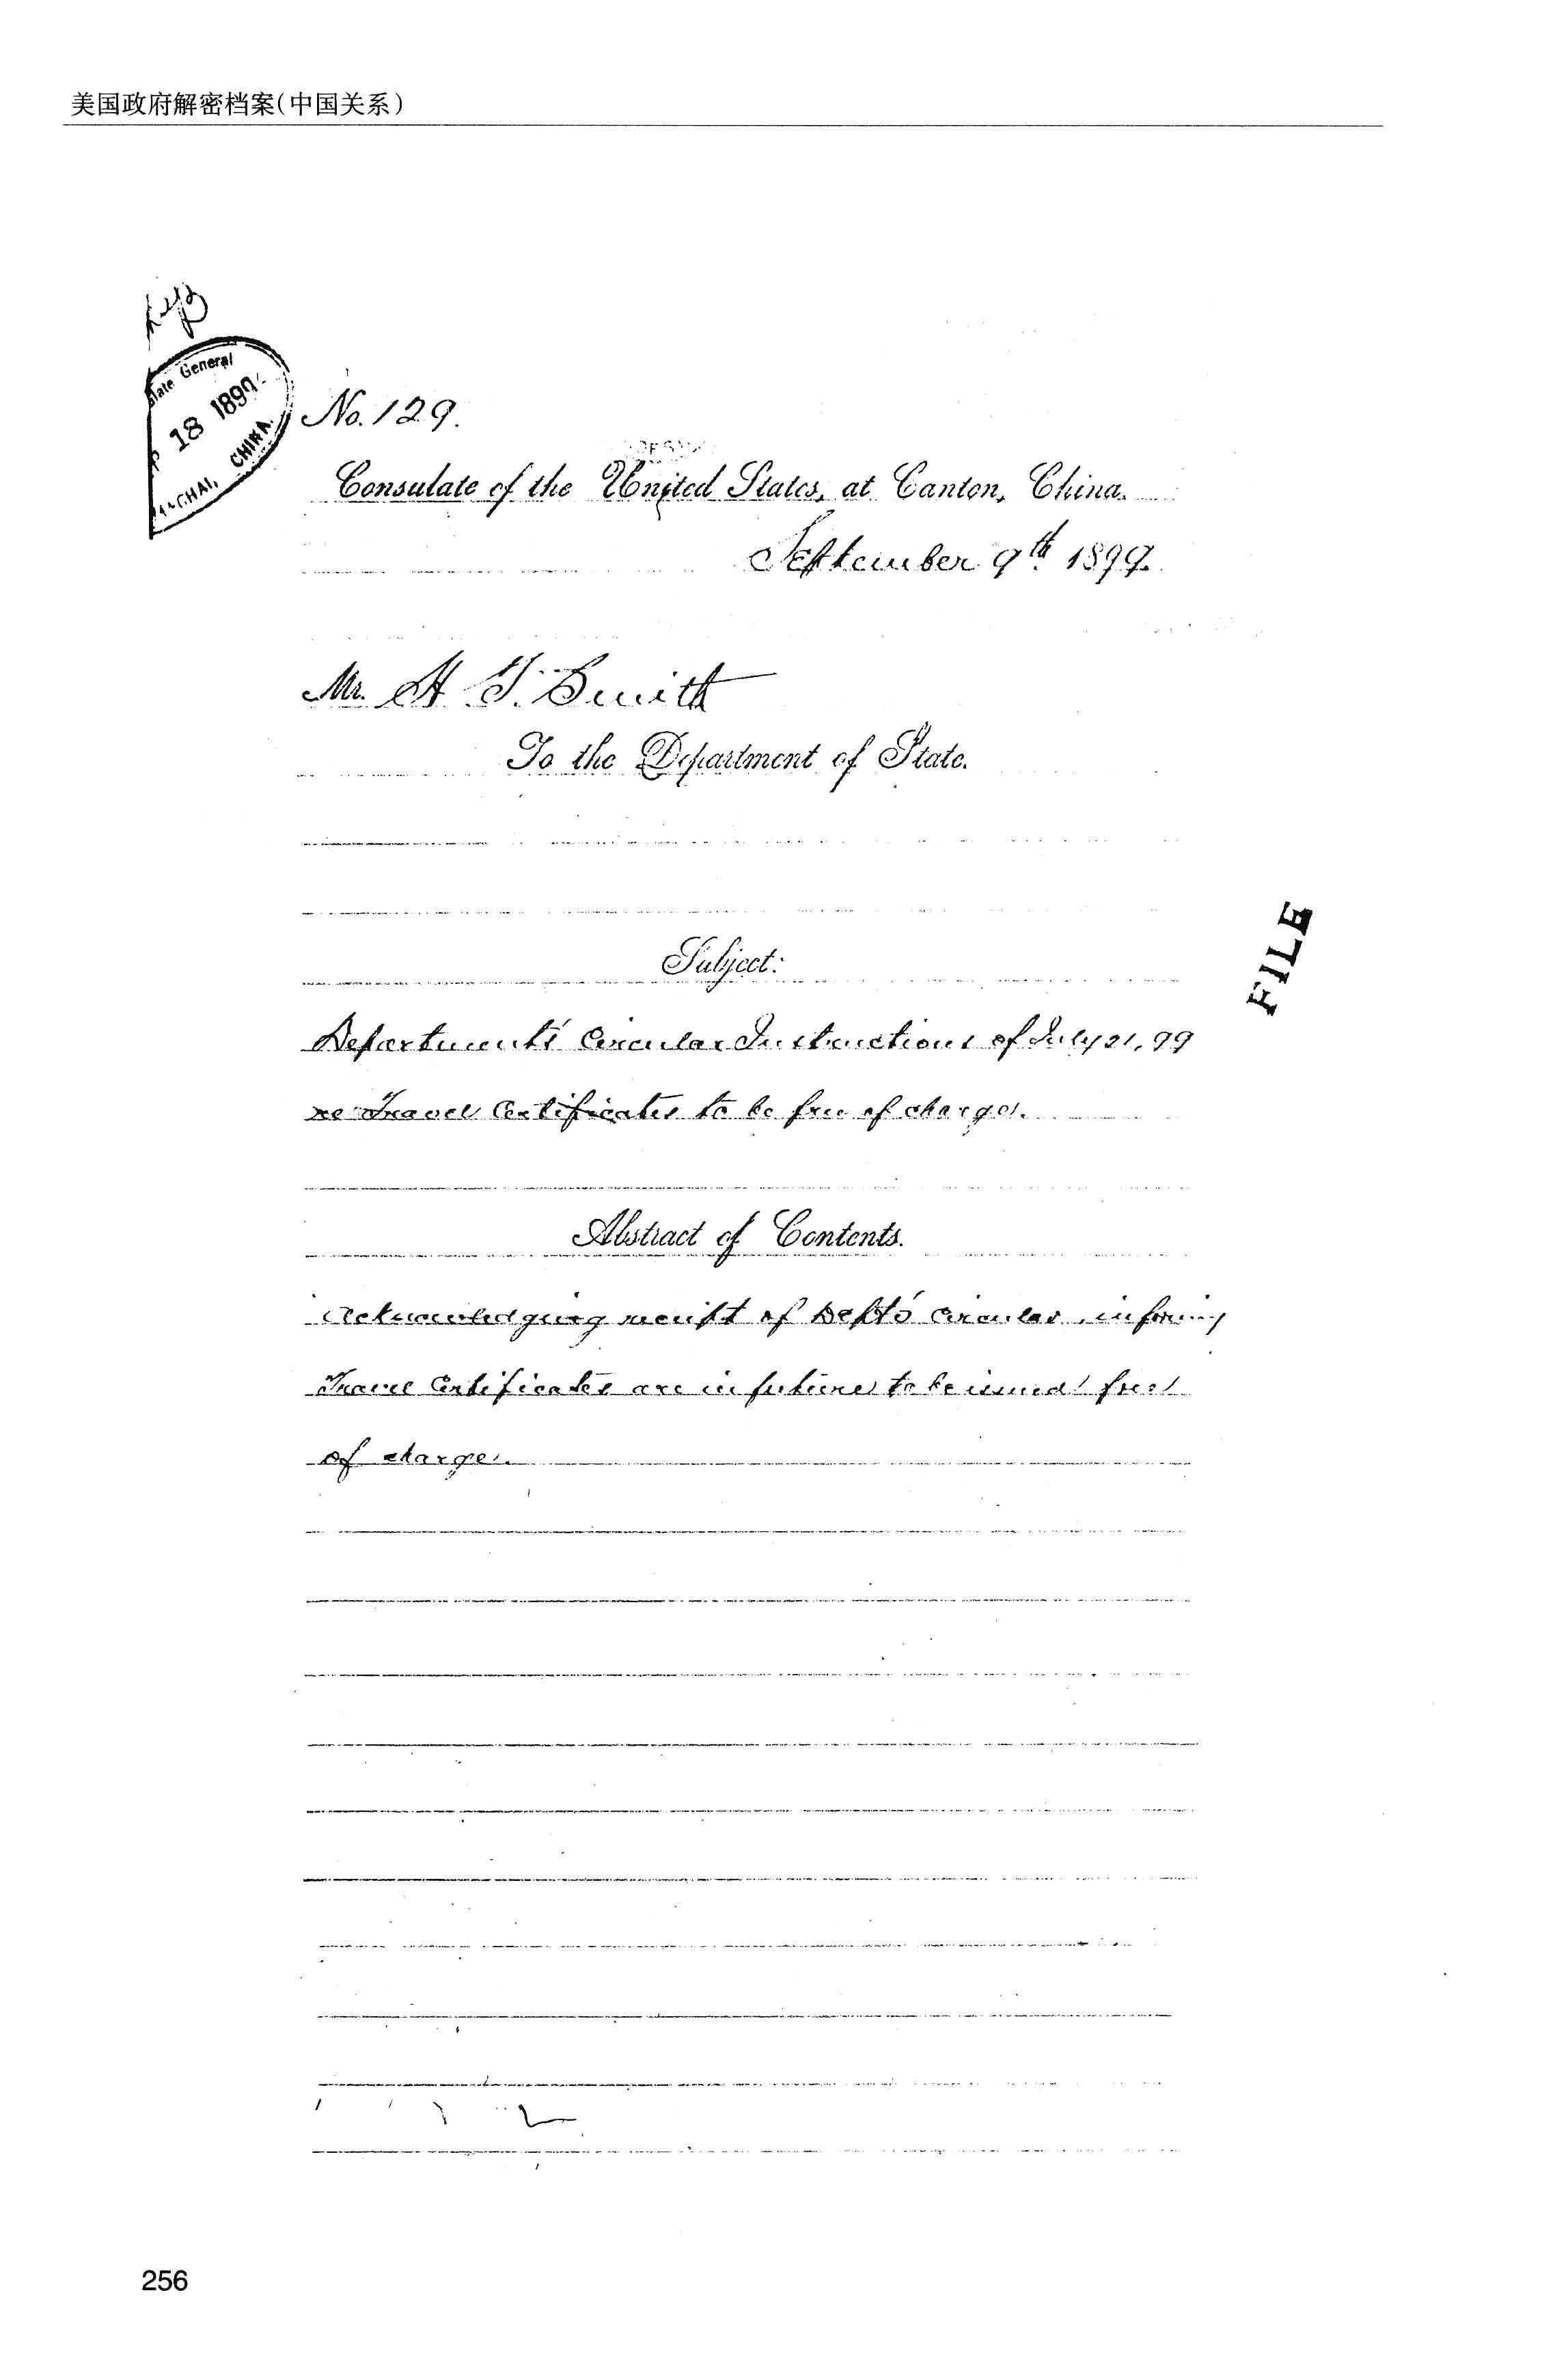 美国政府解密档案(中国关系)
General
18 1899
CHINA.
No. 129.
Consulate of the United States, at Canton, China.
September 9th 1899.
Mr. H. T. Smith
To the Department of State.
FILE
Subject:
Departments' Circular Instructions of July 21, 99
re Travel Certificates to be free of charge.
Abstract of Contents.
Acknowledging receipt of Dept's circular, informing
Travel Certificates are in future to be issued free
of charge.
256